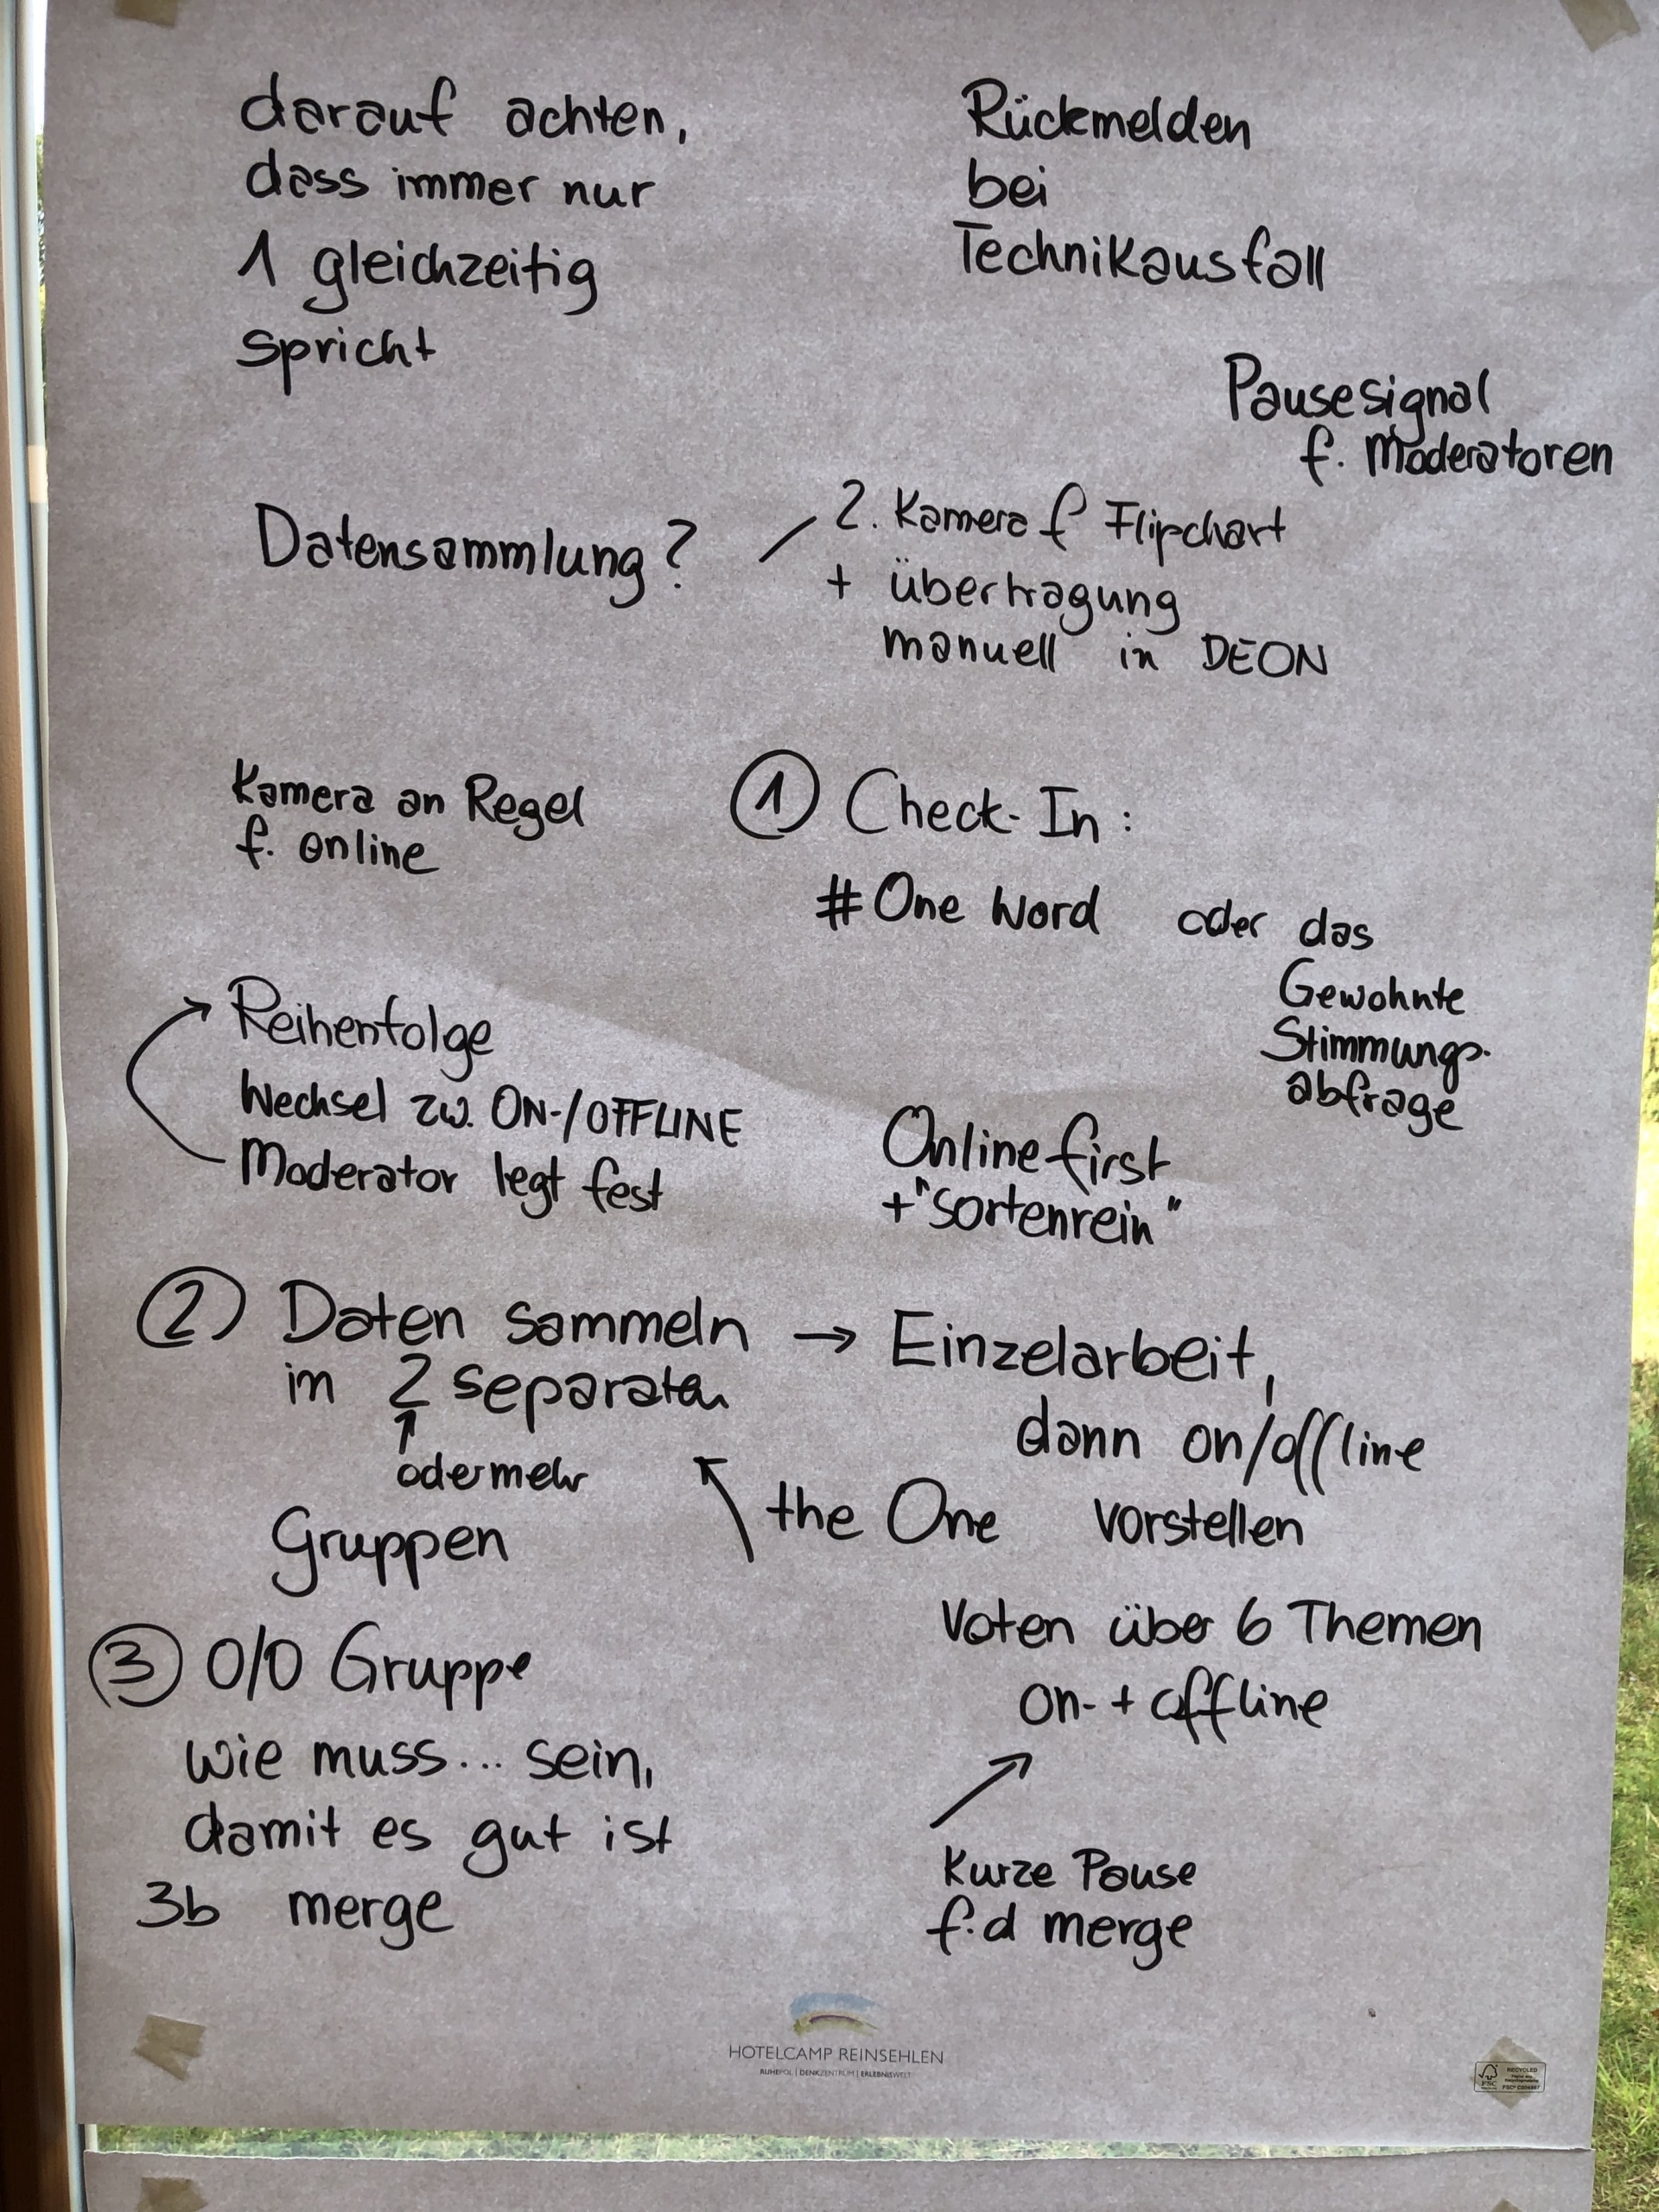 darauf achten,
dass immer nur
1 gleichzeitig
spricht
Rückmelden
bei
Technikausfall
Pausesignal
f. Moderatoren
Datensammlung?
2. Kamera f Flipchart
+ übertragung
manuell in DEON
Kamera an Regel
f. online
1 Check-In:
# One Word oder das
Gewohnte
Stimmungs-
abfrage
Reihenfolge
Wechsel zw. ON-/OFFLINE
Moderator legt fest
Online first
+ "sortenrein"
2 Daten sammeln
in 2 separaten
oder mehr
Gruppen
→ Einzelarbeit,
dann on/offline
vorstellen
the One
Voten über 6 Themen
on- + offline
3 O/O Gruppe
wie muss... sein,
damit es gut ist
3b merge
Kurze Pause
f.d merge
HOTELCAMP REINSEHLEN
RUHEPOL | DENKZENTRUM | ERLEBNISWELT
RECYCLED
FSC